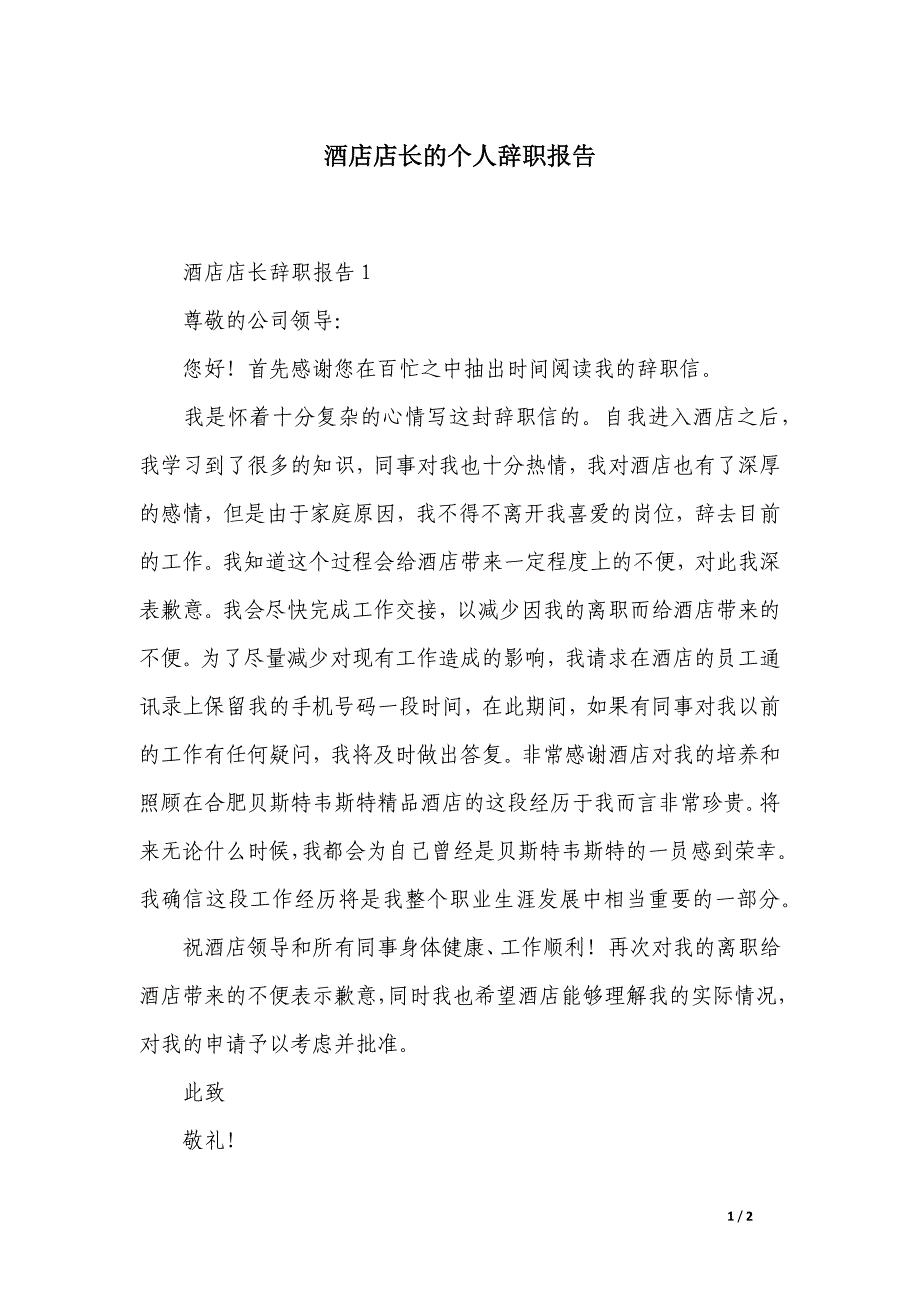 酒店店长的个人辞职报告
酒店店长辞职报告 1
尊敬的公司领导：
您好！首先感谢您在百忙之中抽出时间阅读我的辞职信。
我是怀着十分复杂的心情写这封辞职信的。自我进入酒店之后，
我学习到了很多的知识，同事对我也十分热情，我对酒店也有了深厚
的感情，但是由于家庭原因，我不得不离开我喜爱的岗位，辞去目前
的工作。我知道这个过程会给酒店带来一定程度上的不便，对此我深
表歉意。我会尽快完成工作交接，以减少因我的离职而给酒店带来的
不便。为了尽量减少对现有工作造成的影响，我请求在酒店的员工通
讯录上保留我的手机号码一段时间，在此期间，如果有同事对我以前
的工作有任何疑问，我将及时做出答复。非常感谢酒店对我的培养和
照顾在合肥贝斯特韦斯特精品酒店的这段经历于我而言非常珍贵。将
来无论什么时候，我都会为自己曾经是贝斯特韦斯特的一员感到荣幸。
我确信这段工作经历将是我整个职业生涯发展中相当重要的一部分。
祝酒店领导和所有同事身体健康、工作顺利！再次对我的离职给
酒店带来的不便表示歉意，同时我也希望酒店能够理解我的实际情况，
对我的申请予以考虑并批准。
此致
敬礼！
1 / 2